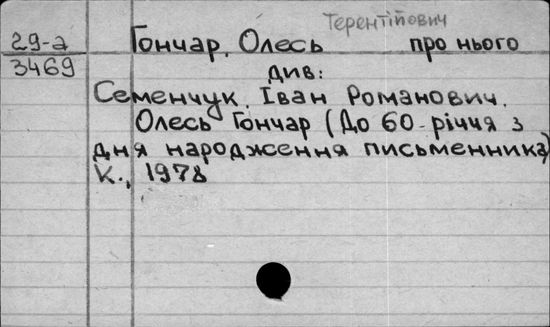 Терентійович
29-а Гончар, Олесь про нього
3469 див:
Семенчук, Іван Романович.
Олесь Гончар (До 60-річчя з
дня народження письменника)
К., 1978